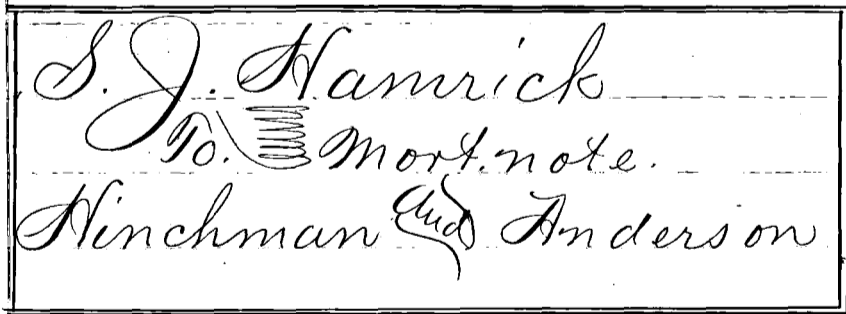 S. J. Hamrick
To. Mort. note.
Hinchman and Anderson